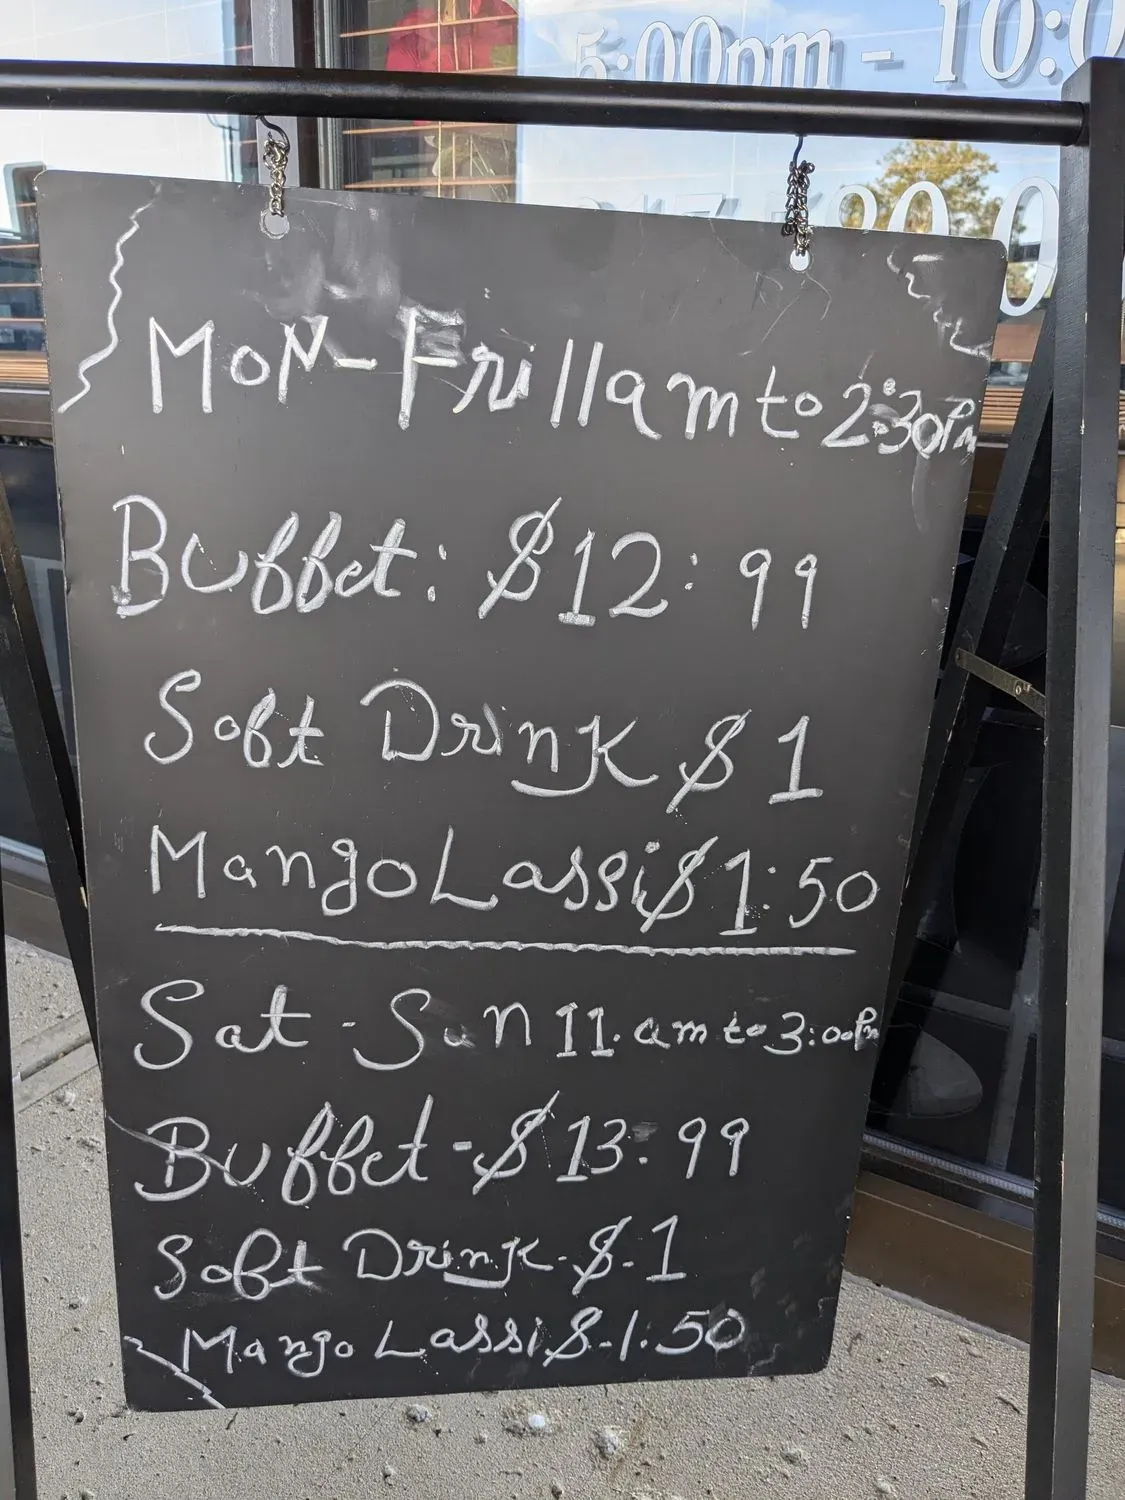 5:00pm - 10:0
Mon-Fri 11am to 2:30Pm
Buffet: $12:99
Soft Drink $1
Mango Lassi $1:50
Sat-Sun 11.am to 3:00Pm
Buffet-$13.99
Soft Drink-$-1
Mango Lassi $-1.50